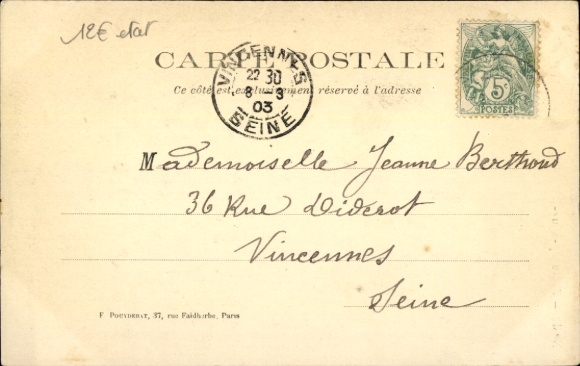 12€ etat
CARTE POSTALE
Ce côté est exclusivement réservé à l'adresse
VINCENNES
22 30
8 - 9
03
SEINE
5c
POSTES
Mademoiselle Jeanne Berthoud
36 Rue Diderot
Vincennes
Seine
F POUYDEBAT, 37, rue Faidherbe, Paris